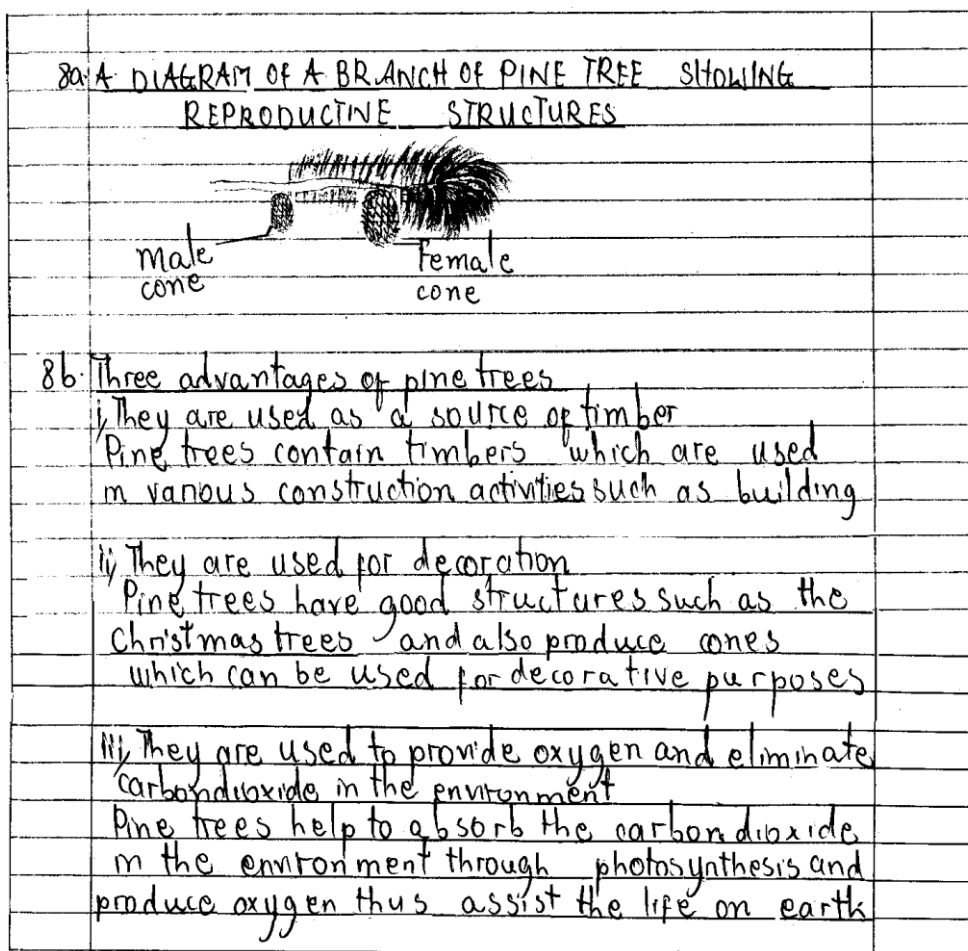 8a. A DIAGRAM OF A BRANCH OF PINE TREE SHOWING
REPRODUCTIVE STRUCTURES
male
cone
Female
cone
8b. Three advantages of pine trees
i, They are used as a source of timber
Pine trees contain timbers which are used
in various construction activities such as building
ii, They are used for decoration
Pine trees have good structures such as the
Christmas trees and also produce cones
which can be used for decorative purposes
iii, They are used to provide oxygen and eliminate
carbondioxide in the environment
Pine trees help to absorb the carbon dioxide
in the environment through photosynthesis and
produce oxygen thus assist the life on earth